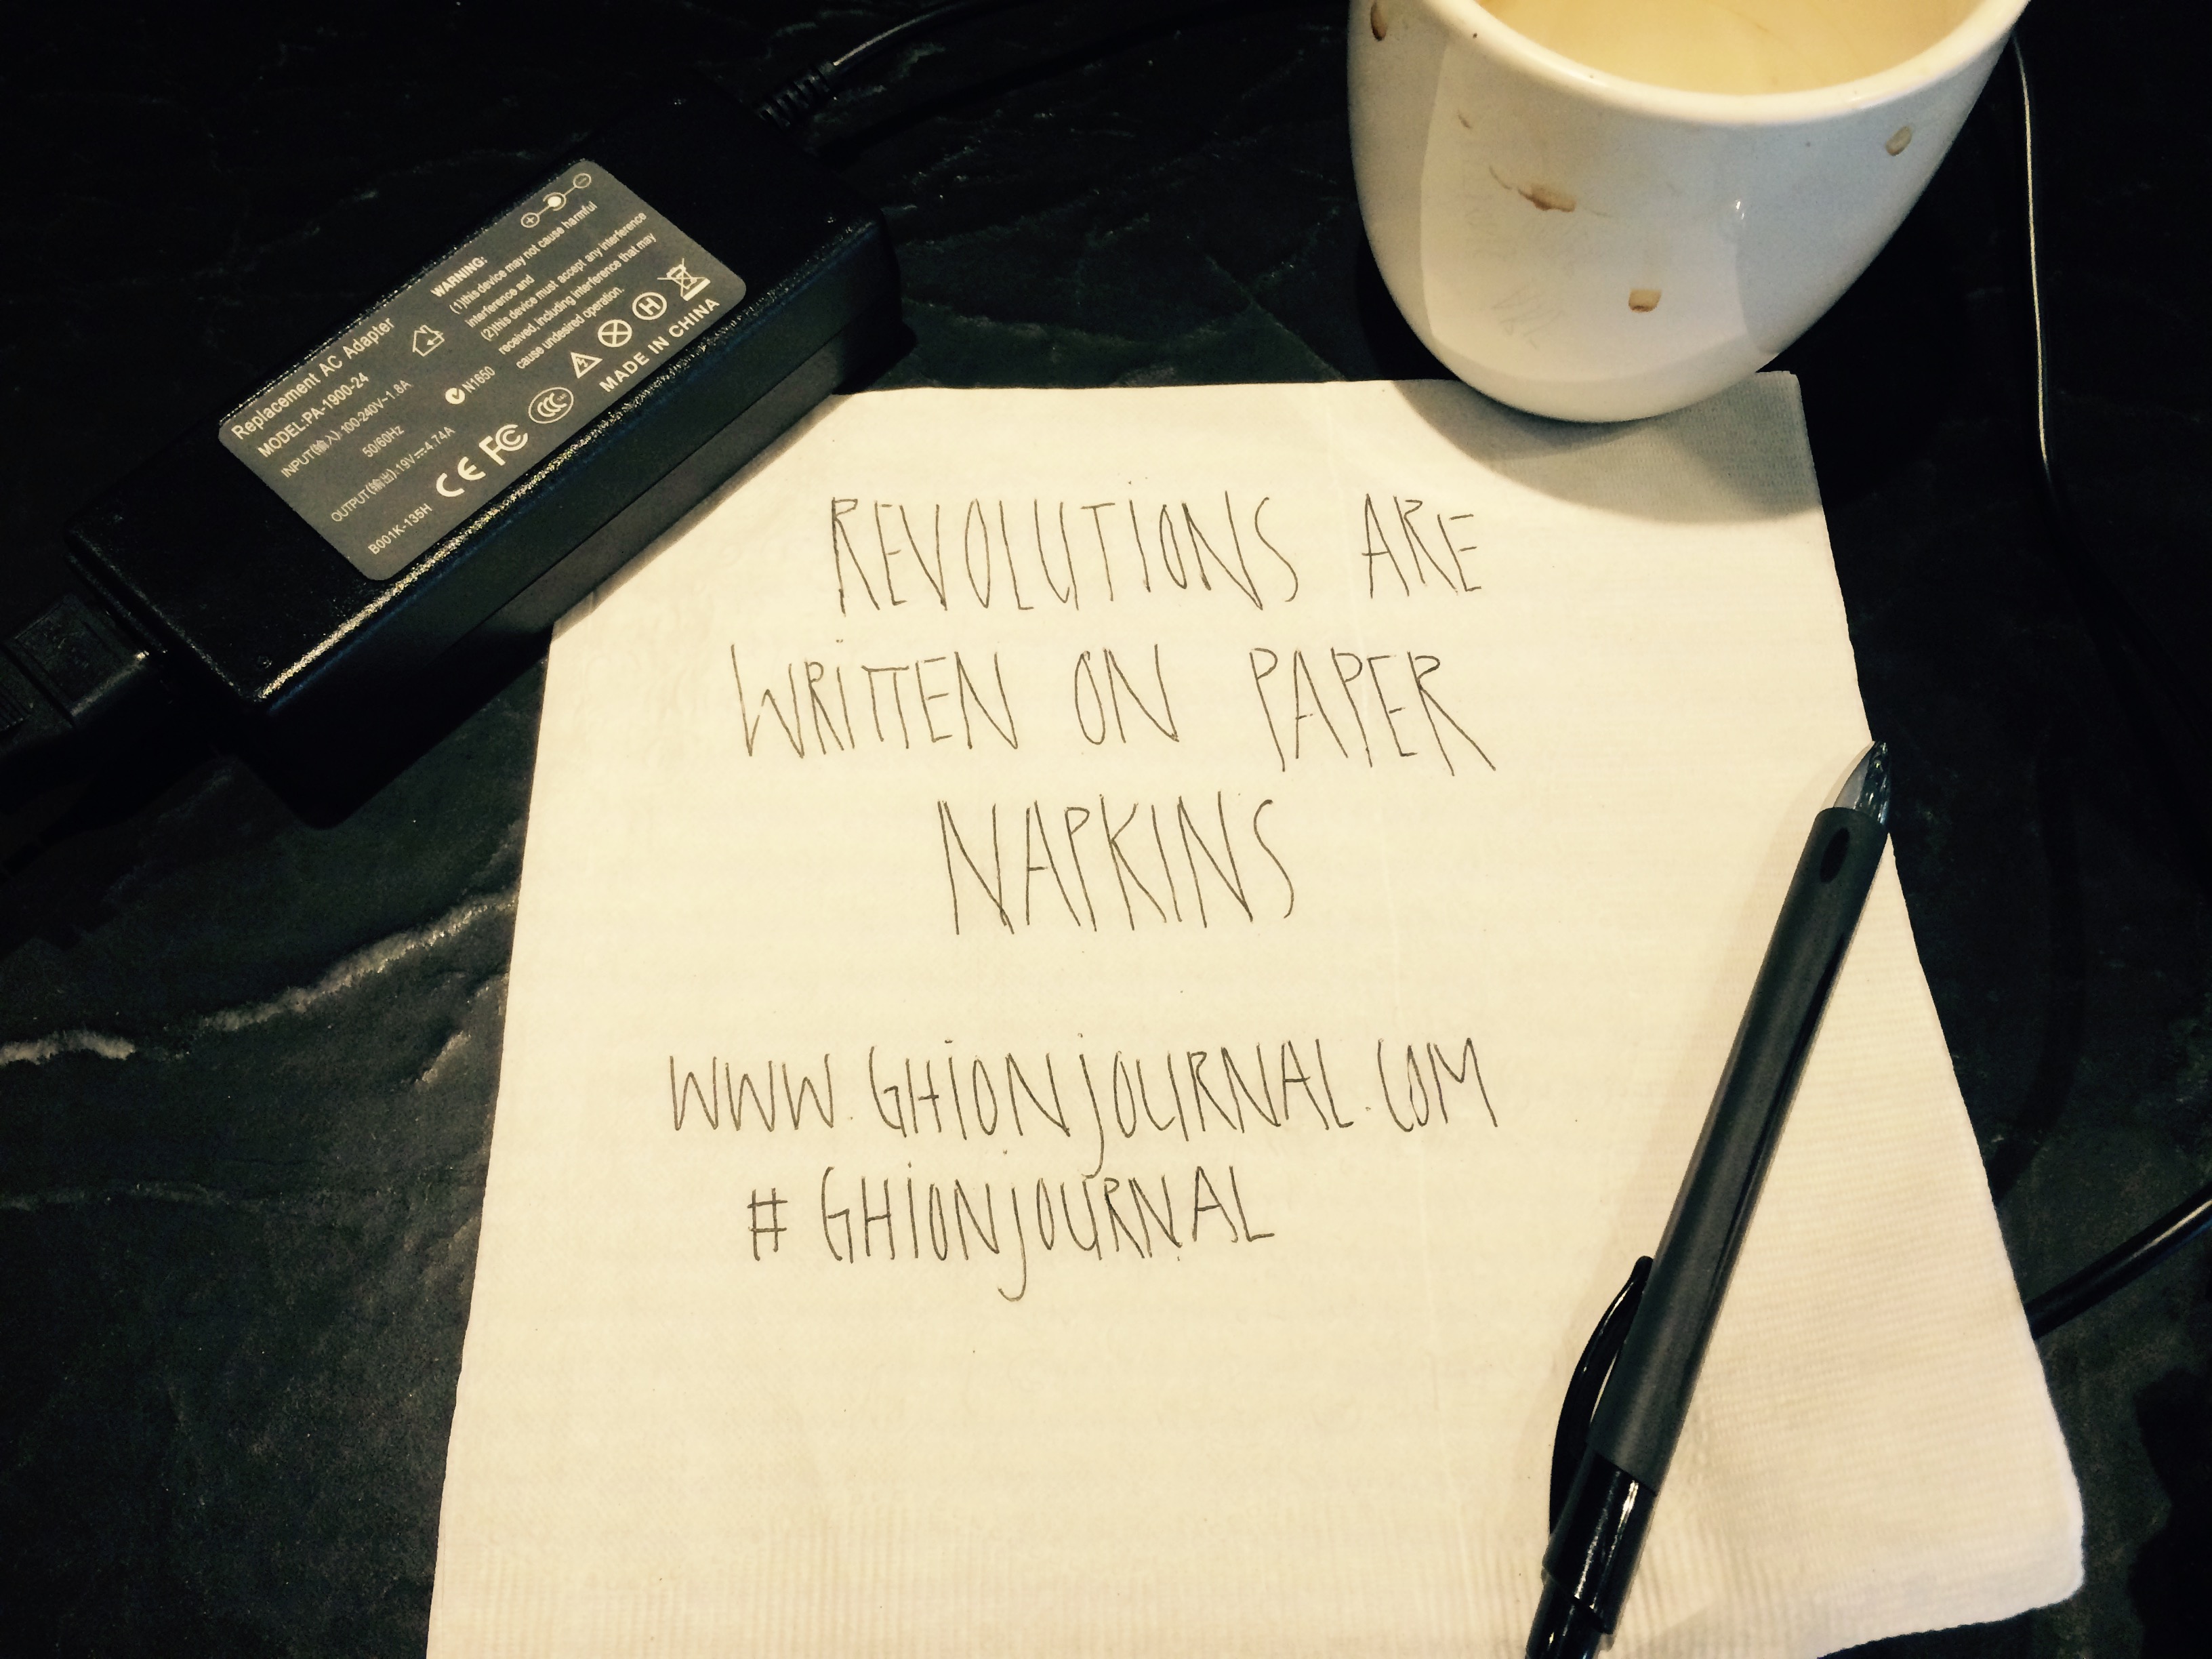 Replacement AC Adapter
MODEL:PA-1900-24
INPUT(输入):100-240V~1.8A
50/60Hz
OUTPUT(输出):19V⎓4.74A
B001K-135H
WARNING:
(1)this device may not cause harmful
interference and
(2)this device must accept any interference
received, including interference that may
cause undesired operation.
N1650
CE FC CCC
H
MADE IN CHINA
REVOLUTIONS ARE
WRITTEN ON PAPER
NAPKINS
WWW.GHIONJOURNAL.COM
# GHIONJOURNAL